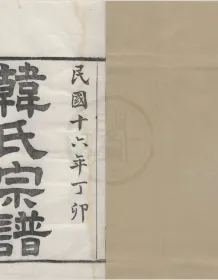 民國十六年丁卯
韓氏宗譜